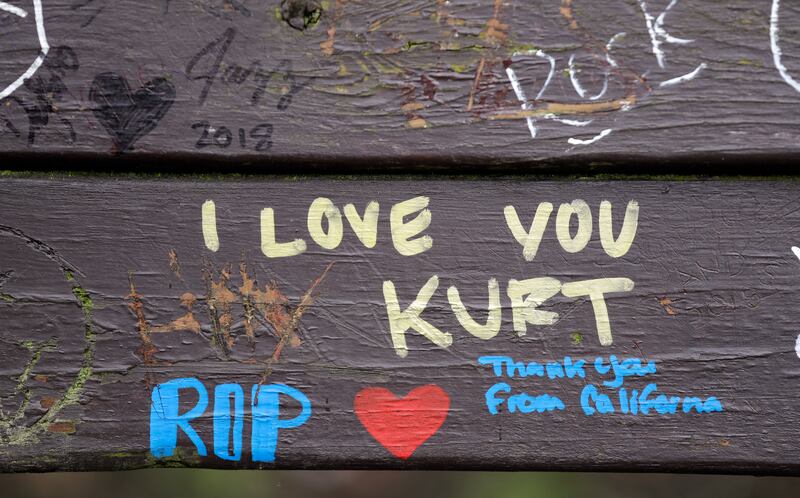 ROCK
Jazz
2018
I LOVE YOU
KURT
Thank you
From California
RIP